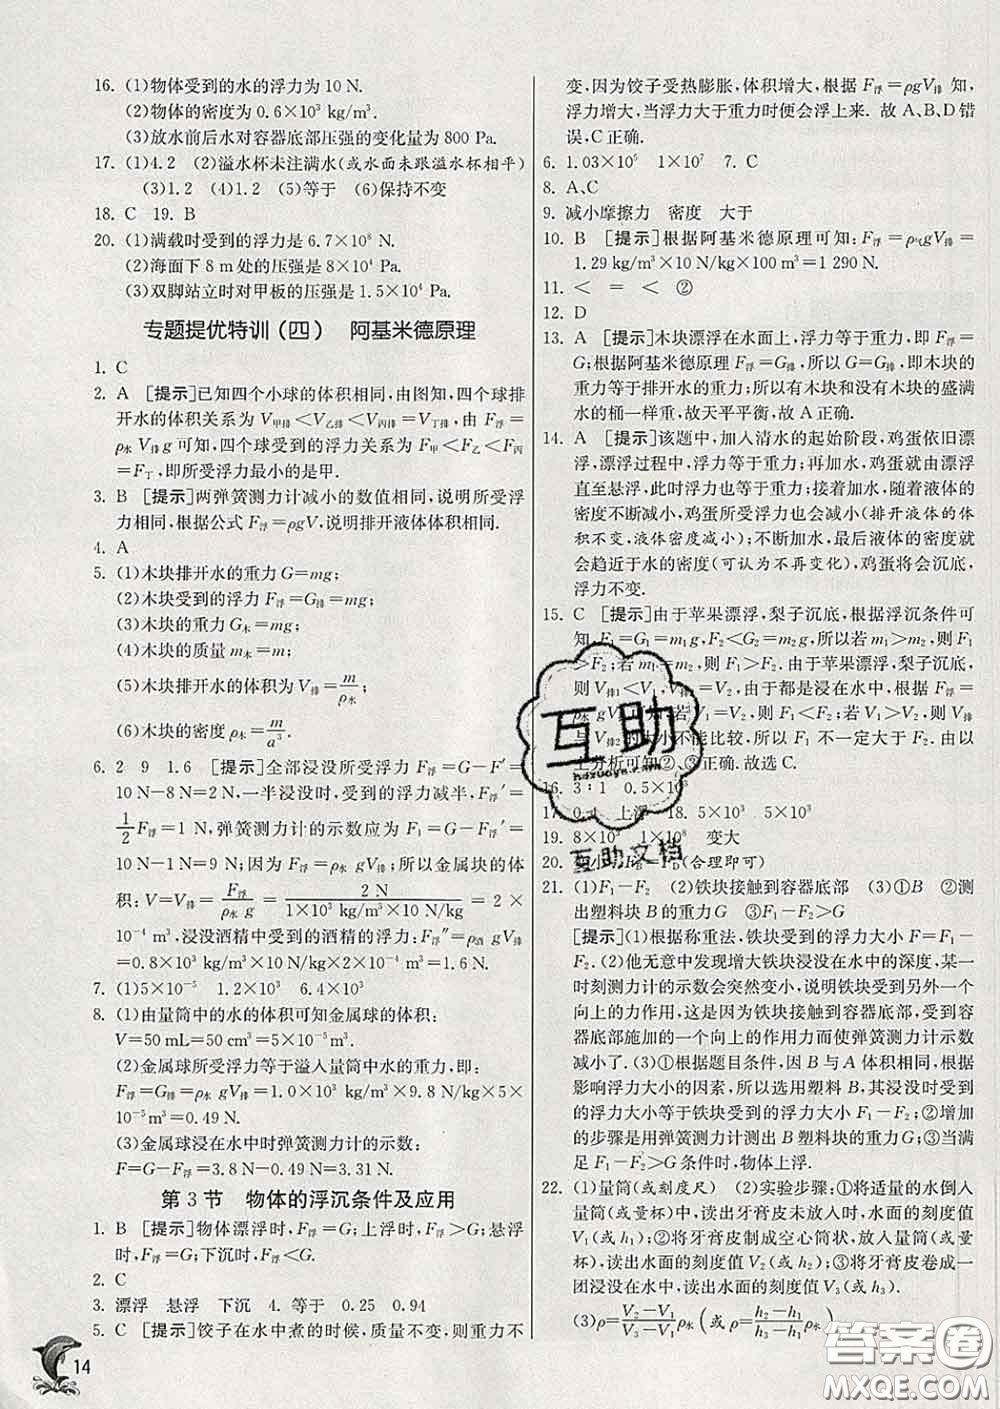 16. (1)物体受到的水的浮力为 10 N.
(2)物体的密度为 0.6×10³ kg/m³.
(3)放水前后水对容器底部压强的变化量为 800 Pa.
17. (1)4.2 (2)溢水杯未注满水(或水面未跟溢水杯相平)
(3)1.2 (4)1.2 (5)等于 (6)保持不变
18. C 19. B
20. (1)满载时受到的浮力是 6.7×10⁸ N.
(2)海面下 8 m 处的压强是 8×10⁴ Pa.
(3)双脚站立时对甲板的压强是 1.5×10⁴ Pa.
专题提优特训(四) 阿基米德原理
1. C
2. A [提示]已知四个小球的体积相同,由图知,四个球排
开水的体积关系为 V甲排<V乙排<V丙排=V丁排,由 F浮=
ρ水 V排 g 可知,四个球受到的浮力关系为 F甲<F乙<F丙
=F丁,即所受浮力最小的是甲.
3. B [提示]两弹簧测力计减小的数值相同,说明所受浮
力相同.根据公式 F浮=ρgV,说明排开液体体积相同.
4. A
5. (1)木块排开水的重力 G=mg;
(2)木块受到的浮力 F浮=G排=mg;
(3)木块的重力 G木=mg;
(4)木块的质量 m木=m;
(5)木块排开水的体积为 V排=m/ρ水
(6)木块的密度 ρ木=m/a³.
6. 2 9 1.6 [提示]全部浸没所受浮力 F浮=G-F′=
10 N-8 N=2 N,一半浸没时,受到的浮力减半,F浮′=
1/2 F浮=1 N,弹簧测力计的示数应为 F₁=G-F浮′=
10 N-1 N=9 N;因为 F浮=ρ水 gV排;所以金属块的体
积:V=V排=F浮/ρ水 g=2 N/1×10³ kg/m³×10 N/kg=2×
10⁻⁴ m³,浸没酒精中受到的酒精的浮力:F浮″=ρ酒 gV排
=0.8×10³ kg/m³×10 N/kg×2×10⁻⁴ m³=1.6 N.
7. (1)5×10⁻⁵ 1.2×10³ 6.4×10³
8. (1)由量筒中的水的体积可知金属球的体积:
V=50 mL=50 cm³=5×10⁻⁵ m³.
(2)金属球所受浮力等于溢入量筒中水的重力,即:
F浮=G排=ρ水 gV排=1.0×10³ kg/m³×9.8 N/kg×5×
10⁻⁵ m³=0.49 N.
(3)金属球浸在水中时弹簧测力计的示数:
F=G-F浮=3.8 N-0.49 N=3.31 N.
第 3 节 物体的浮沉条件及应用
1. B [提示]物体漂浮时,F浮=G;上浮时,F浮>G;悬浮
时,F浮=G;下沉时,F浮<G.
2. C
3. 漂浮 悬浮 下沉 4. 等于 0.25 0.94
5. C [提示]饺子在水中煮的时候,质量不变,则重力不
14
变,因为饺子受热膨胀,体积增大,根据 F浮=ρgV排 知,
浮力增大,当浮力大于重力时便会浮上来. 故 A、B、D 错
误,C 正确.
6. 1.03×10⁵ 1×10⁷ 7. C
8. A、C
9. 减小摩擦力 密度 大于
10. B [提示]根据阿基米德原理可知:F浮=ρ气gV排=
1.29 kg/m³×10 N/kg×100 m³=1 290 N.
11. < = < ②
12. D
13. A [提示]木块漂浮在水面上,浮力等于重力,即 F浮=
G;根据阿基米德原理 F浮=G排,所以 G=G排,即木块的
重力等于排开水的重力;所以有木块和没有木块的盛满
水的桶一样重,故天平平衡,故 A 正确.
14. A [提示]该题中,加入清水的起始阶段,鸡蛋依旧漂
浮,漂浮过程中,浮力等于重力;再加水,鸡蛋就由漂浮
直至悬浮,此时浮力也等于重力;接着加水,随着液体的
密度不断减小,鸡蛋所受浮力也减小(排开液体的体
积不变,液体密度减小);不断加水,最后液体的密度就
会趋近于水的密度(可认为不再变化),鸡蛋将会沉底,
浮力不变.
15. C [提示]由于苹果漂浮,梨子沉底,根据浮沉条件可
知,F₁=G₁=m₁g,F₂<G₂=m₂g,所以若 m₁>m₂,则 F₁
>F₂;若 m₁=m₂,则 F₁>F₂. 由于苹果漂浮,梨子沉底,
则 V排1<V₁,V排2=V₂,由于都是浸在水中,根据 F浮=
ρ gV排 可知,若 V₁=V₂,则 F₁<F₂;若 V₁>V₂,则 V排1
与 V排2的大小不能比较,所以 F₁ 不一定大于 F₂. 由以
上分析可知②、③正确.故选 C.
16. 3∶1 0.5×10³
17. 0.4 上浮 18. 5×10³ 5×10³
19. 8×10³ 1×10⁸ 变大
20. 小 =F(合理即可)
21. (1)F₁-F₂ (2)铁块接触到容器底部 (3)①B ②测
出塑料块 B 的重力 G ③F₁-F₂>G
[提示](1)根据称重法,铁块受到的浮力大小 F=F₁-
F₂. (2)他无意中发现增大铁块浸没在水中的深度,某一
时刻测力计的示数会突然变小,说明铁块受到另外一个
向上的力的作用,这是因为铁块接触到容器底部,受到
容器底部施加的一个向上的作用力而使弹簧测力计示数
减小了. (3)①根据题目条件,因 B 与 A 体积相同,根据
影响浮力大小的因素,所以选用塑料 B,其浸没时受到
的浮力大小等于铁块受到的浮力大小 F₁-F₂;②增加
的步骤是用弹簧测力计测出 B 塑料块的重力 G;③当满
足 F₁-F₂>G 条件时,物体上浮.
22. (1)量筒(或刻度尺) (2)实验步骤:①将适量的水倒入
量杯中,读出牙膏皮未放入时,水面的刻度值
V₁(或 h₁);②将牙膏皮制成空心筒状,放入量筒(或量
杯),读出水面的刻度值 V₂(或 h₂);③将牙膏皮卷成一
团浸没在水中,读出水面的刻度值 V₃(或 h₃).
(3)ρ=V₂-V₁/V₃-V₁ ρ水(或 ρ=h₂-h₁/h₃-h₁ ρ水)
互助
互助文档
答案圈
MXQE.COM